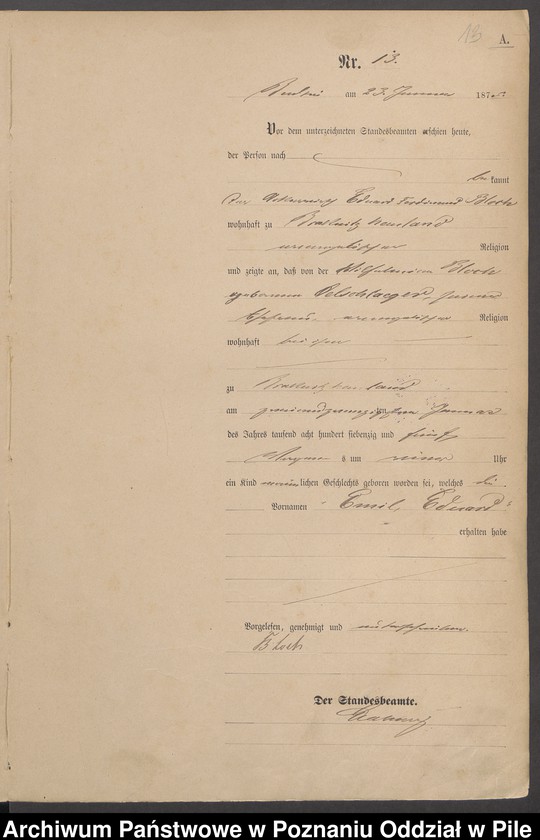 13
A.
Nr. 13.
am 23. Januar 1875.
Vor dem unterzeichneten Standesbeamten erschien heute,
der Person nach
be kannt
der Eduard Ferdinand Block
wohnhaft zu
evangelischer Religion
und zeigte an, daß von der Wilhelmine Block
geborenen Oelschlaeger, seiner
Ehefrau evangelischer Religion
wohnhaft bei ihm
zu
am zweiundzwanzigsten Januar
des Jahres tausend acht hundert siebenzig und fünf
s um Uhr
ein Kind männlichen Geschlechts geboren worden sei, welches die
Vornamen Emil, Eduard
erhalten habe
Vorgelesen, genehmigt und unterschrieben.
Block
Der Standesbeamte.
Archiwum Państwowe w Poznaniu Oddział w Pile